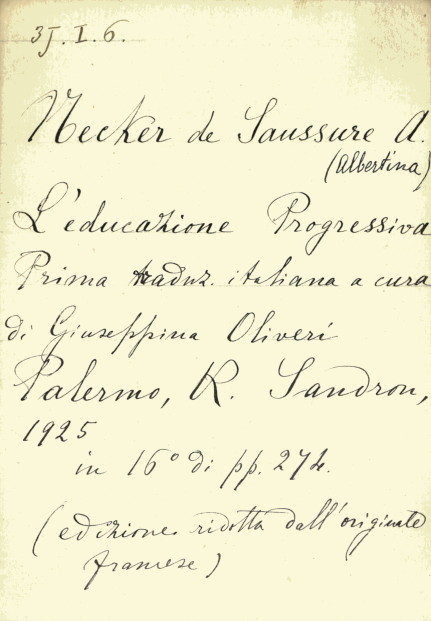 35.I.6.
Necker de Saussure A.
(Albertina)
L'educazione Progressiva
Prima traduz. italiana a cura
di Giuseppina Oliveri
Palermo, R. Sandron,
1925
in 16° di pp. 274.
(edizione ridotta dall'originale
francese)